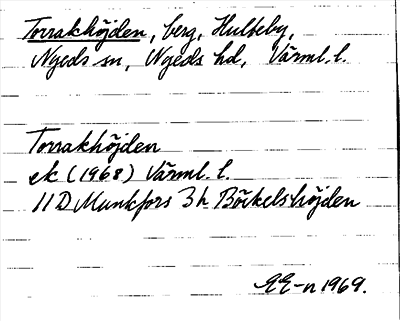 Torrakhöjden, berg, Hulteby,
Nyeds sn, Nyeds hd, Värml. l.
Torrakhöjden
ek (1968) Värml. l.
11 D Munkfors 3 h Börkelshöjden
EE-n 1969.